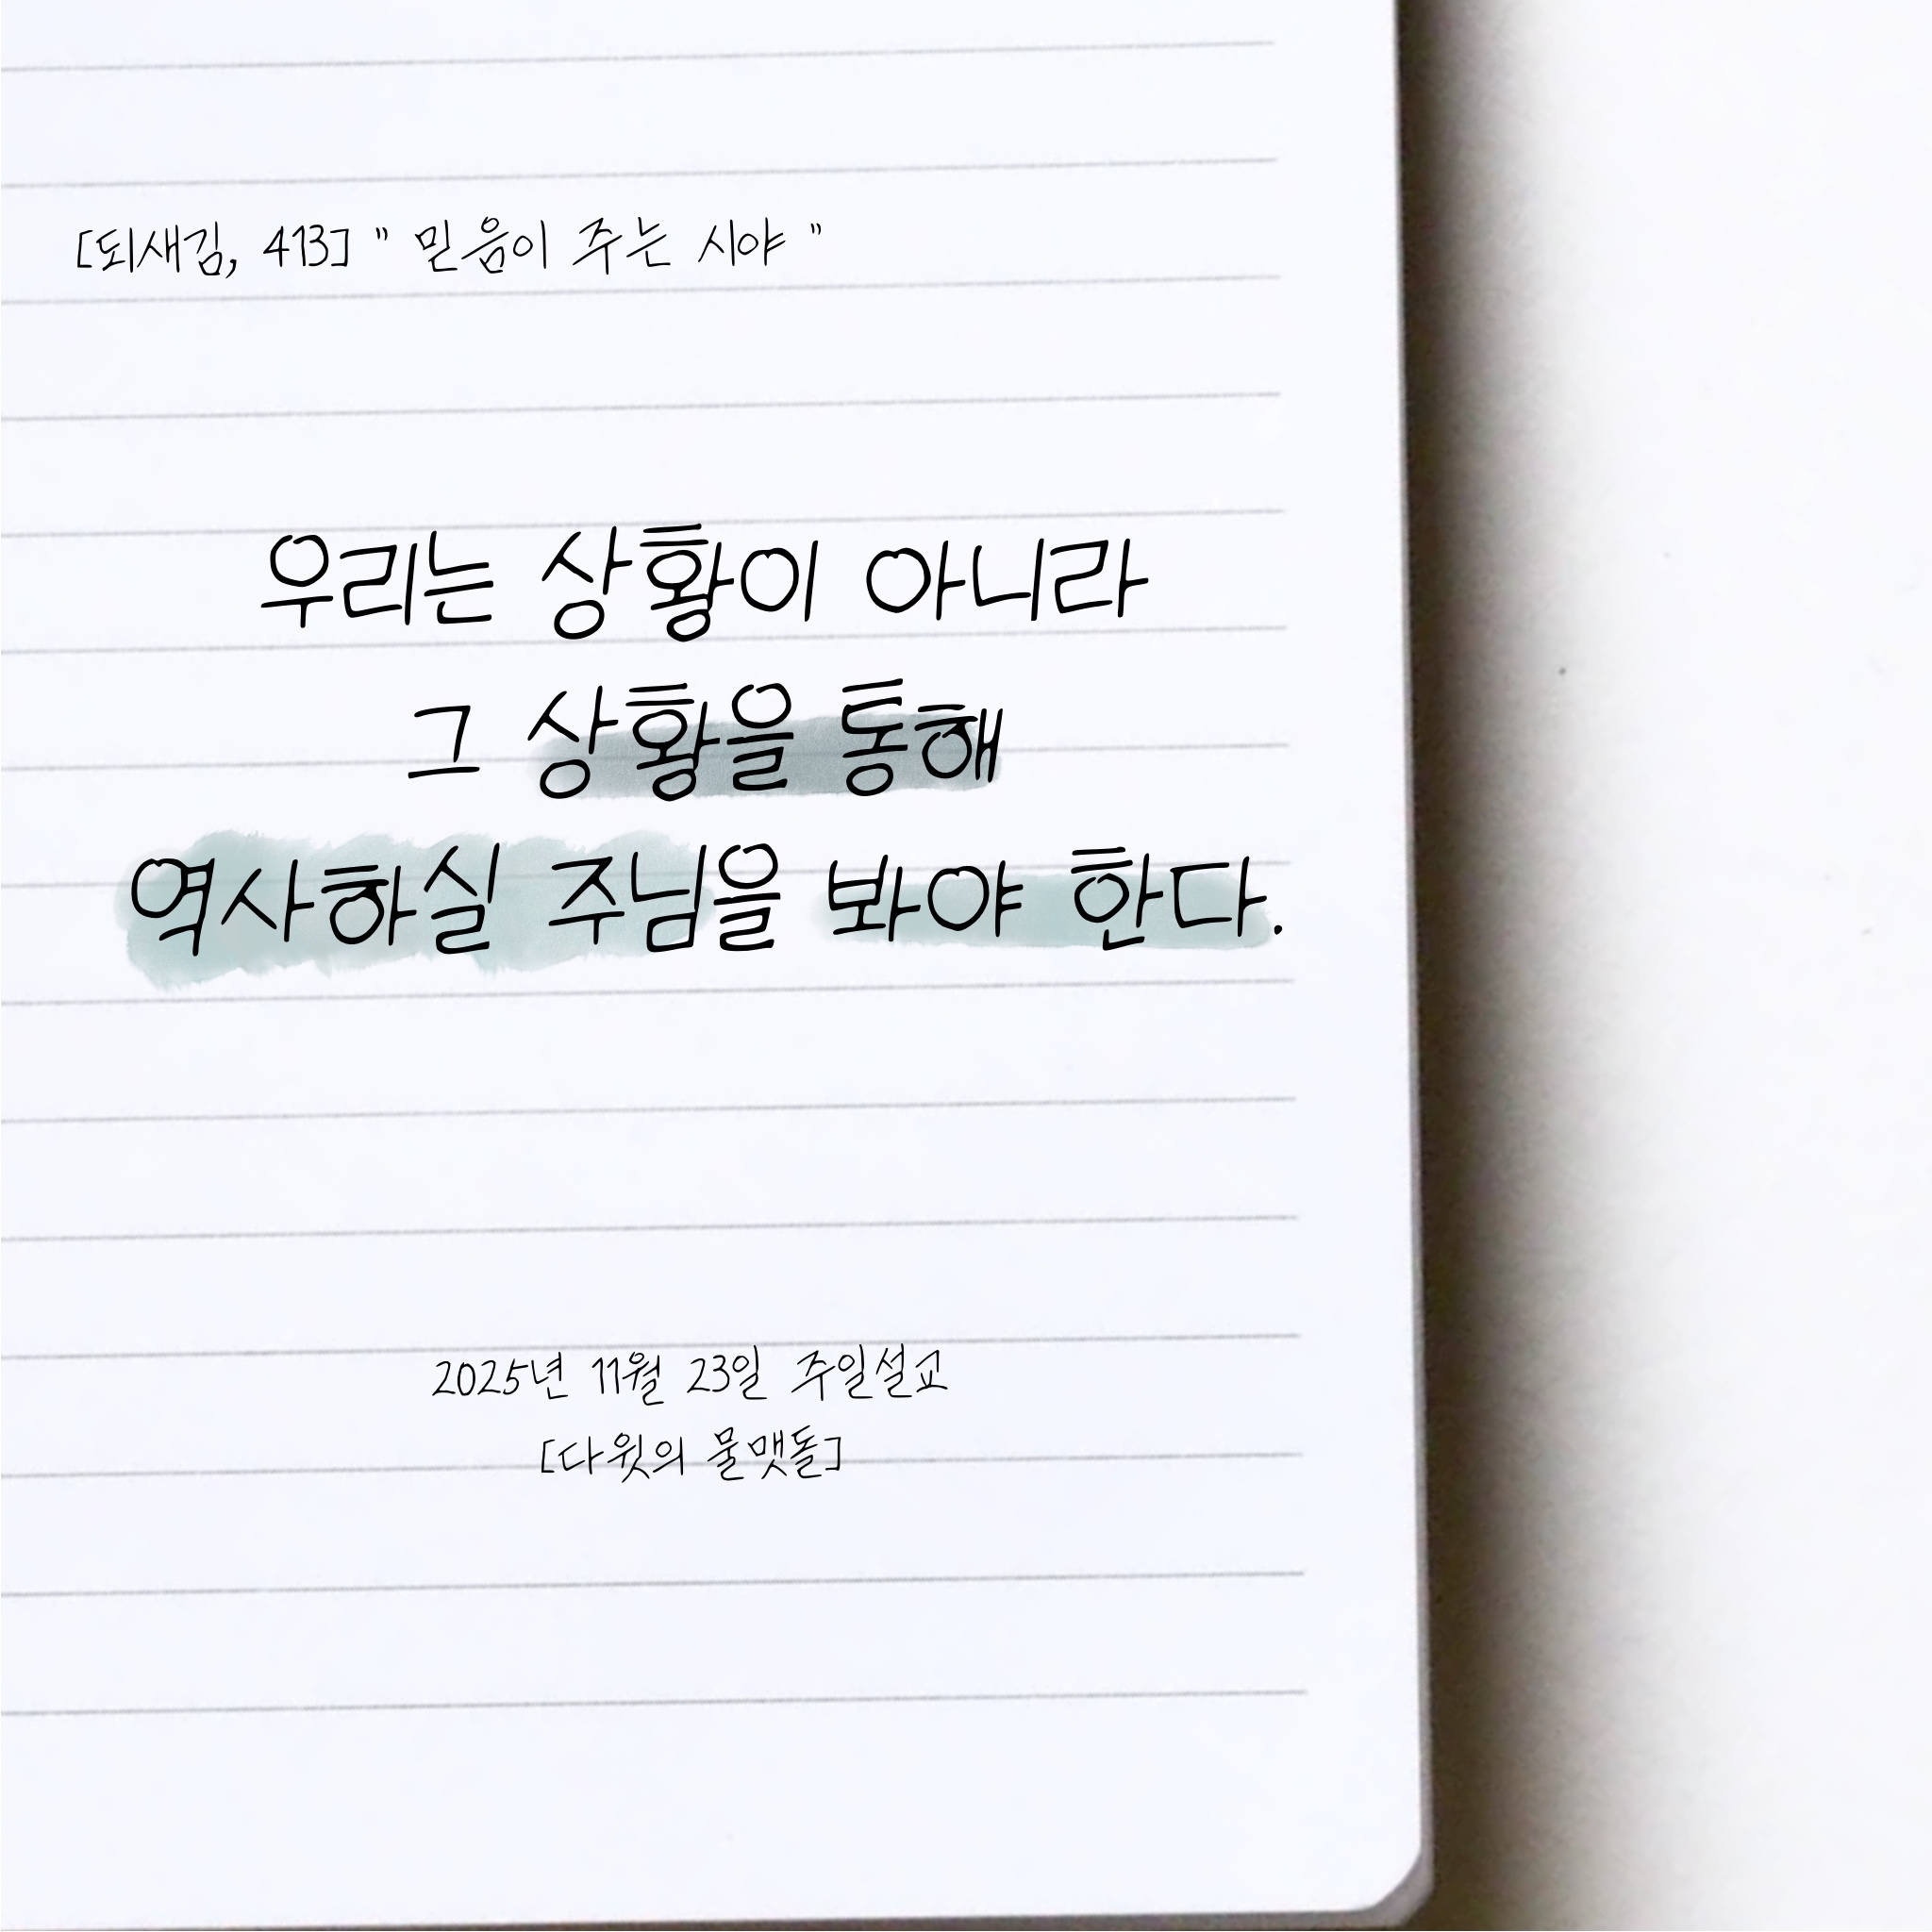 [되새김, 413] " 믿음이 주는 시야 "
우리는 상황이 아니라
그 상황을 통해
역사하실 주님을 봐야 한다.
2025년 11월 23일 주일설교
[다윗의 물맷돌]